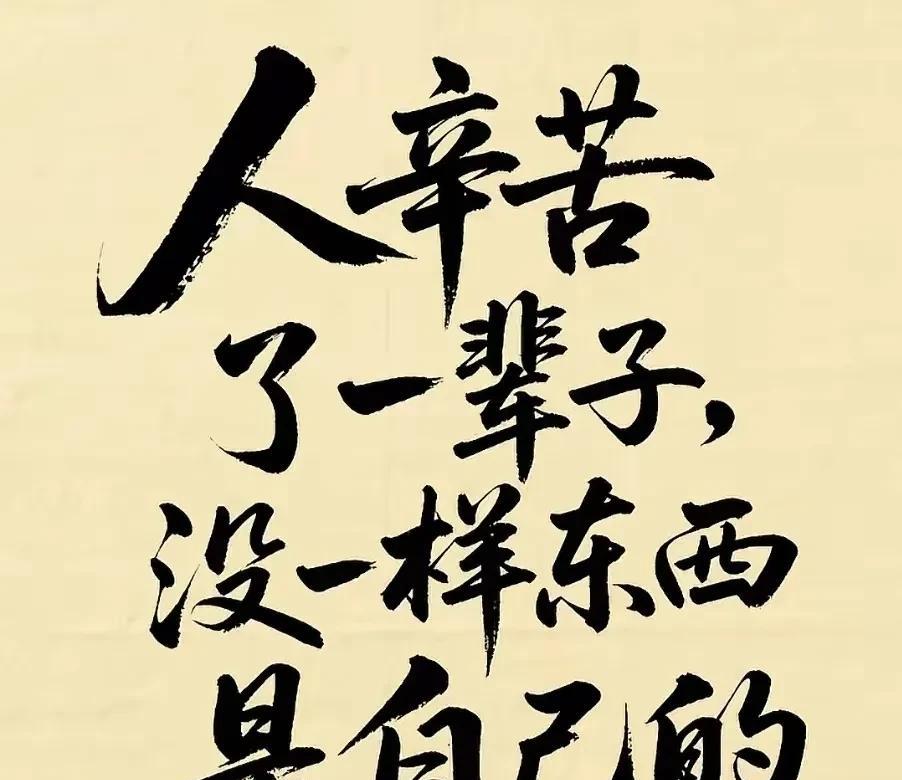 人辛苦
了一辈子,
没一样东西
是自己的